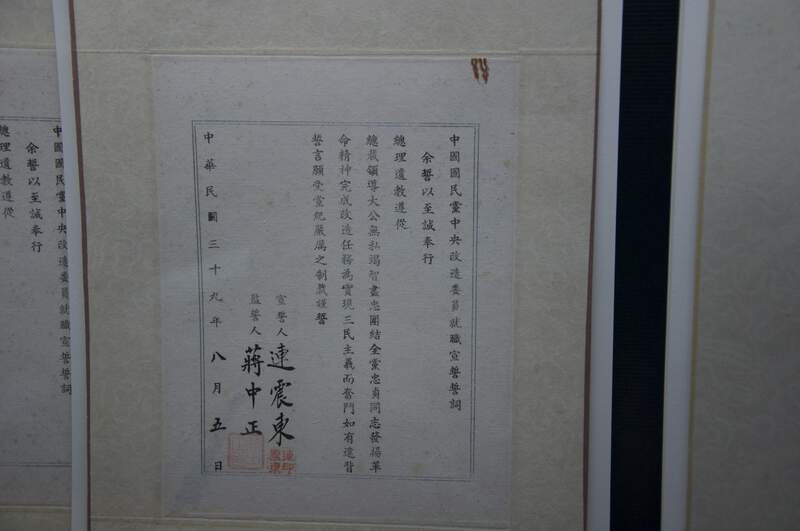 中國國民黨中央改造委員就職宣誓誓詞
余誓以至誠奉行
總理遺教遵從
總裁領導大公無私竭智盡忠團結全黨忠貞同志發揚革
命精神完成改造任務為實現三民主義而奮鬥如有違背
誓言願受黨紀嚴厲之制裁謹誓
宣誓人 連震東
監誓人 蔣中正
中華民國三十九年八月五日
中國國民黨中央改造委員就職宣誓誓詞
余誓以至誠奉行
總理遺教遵從